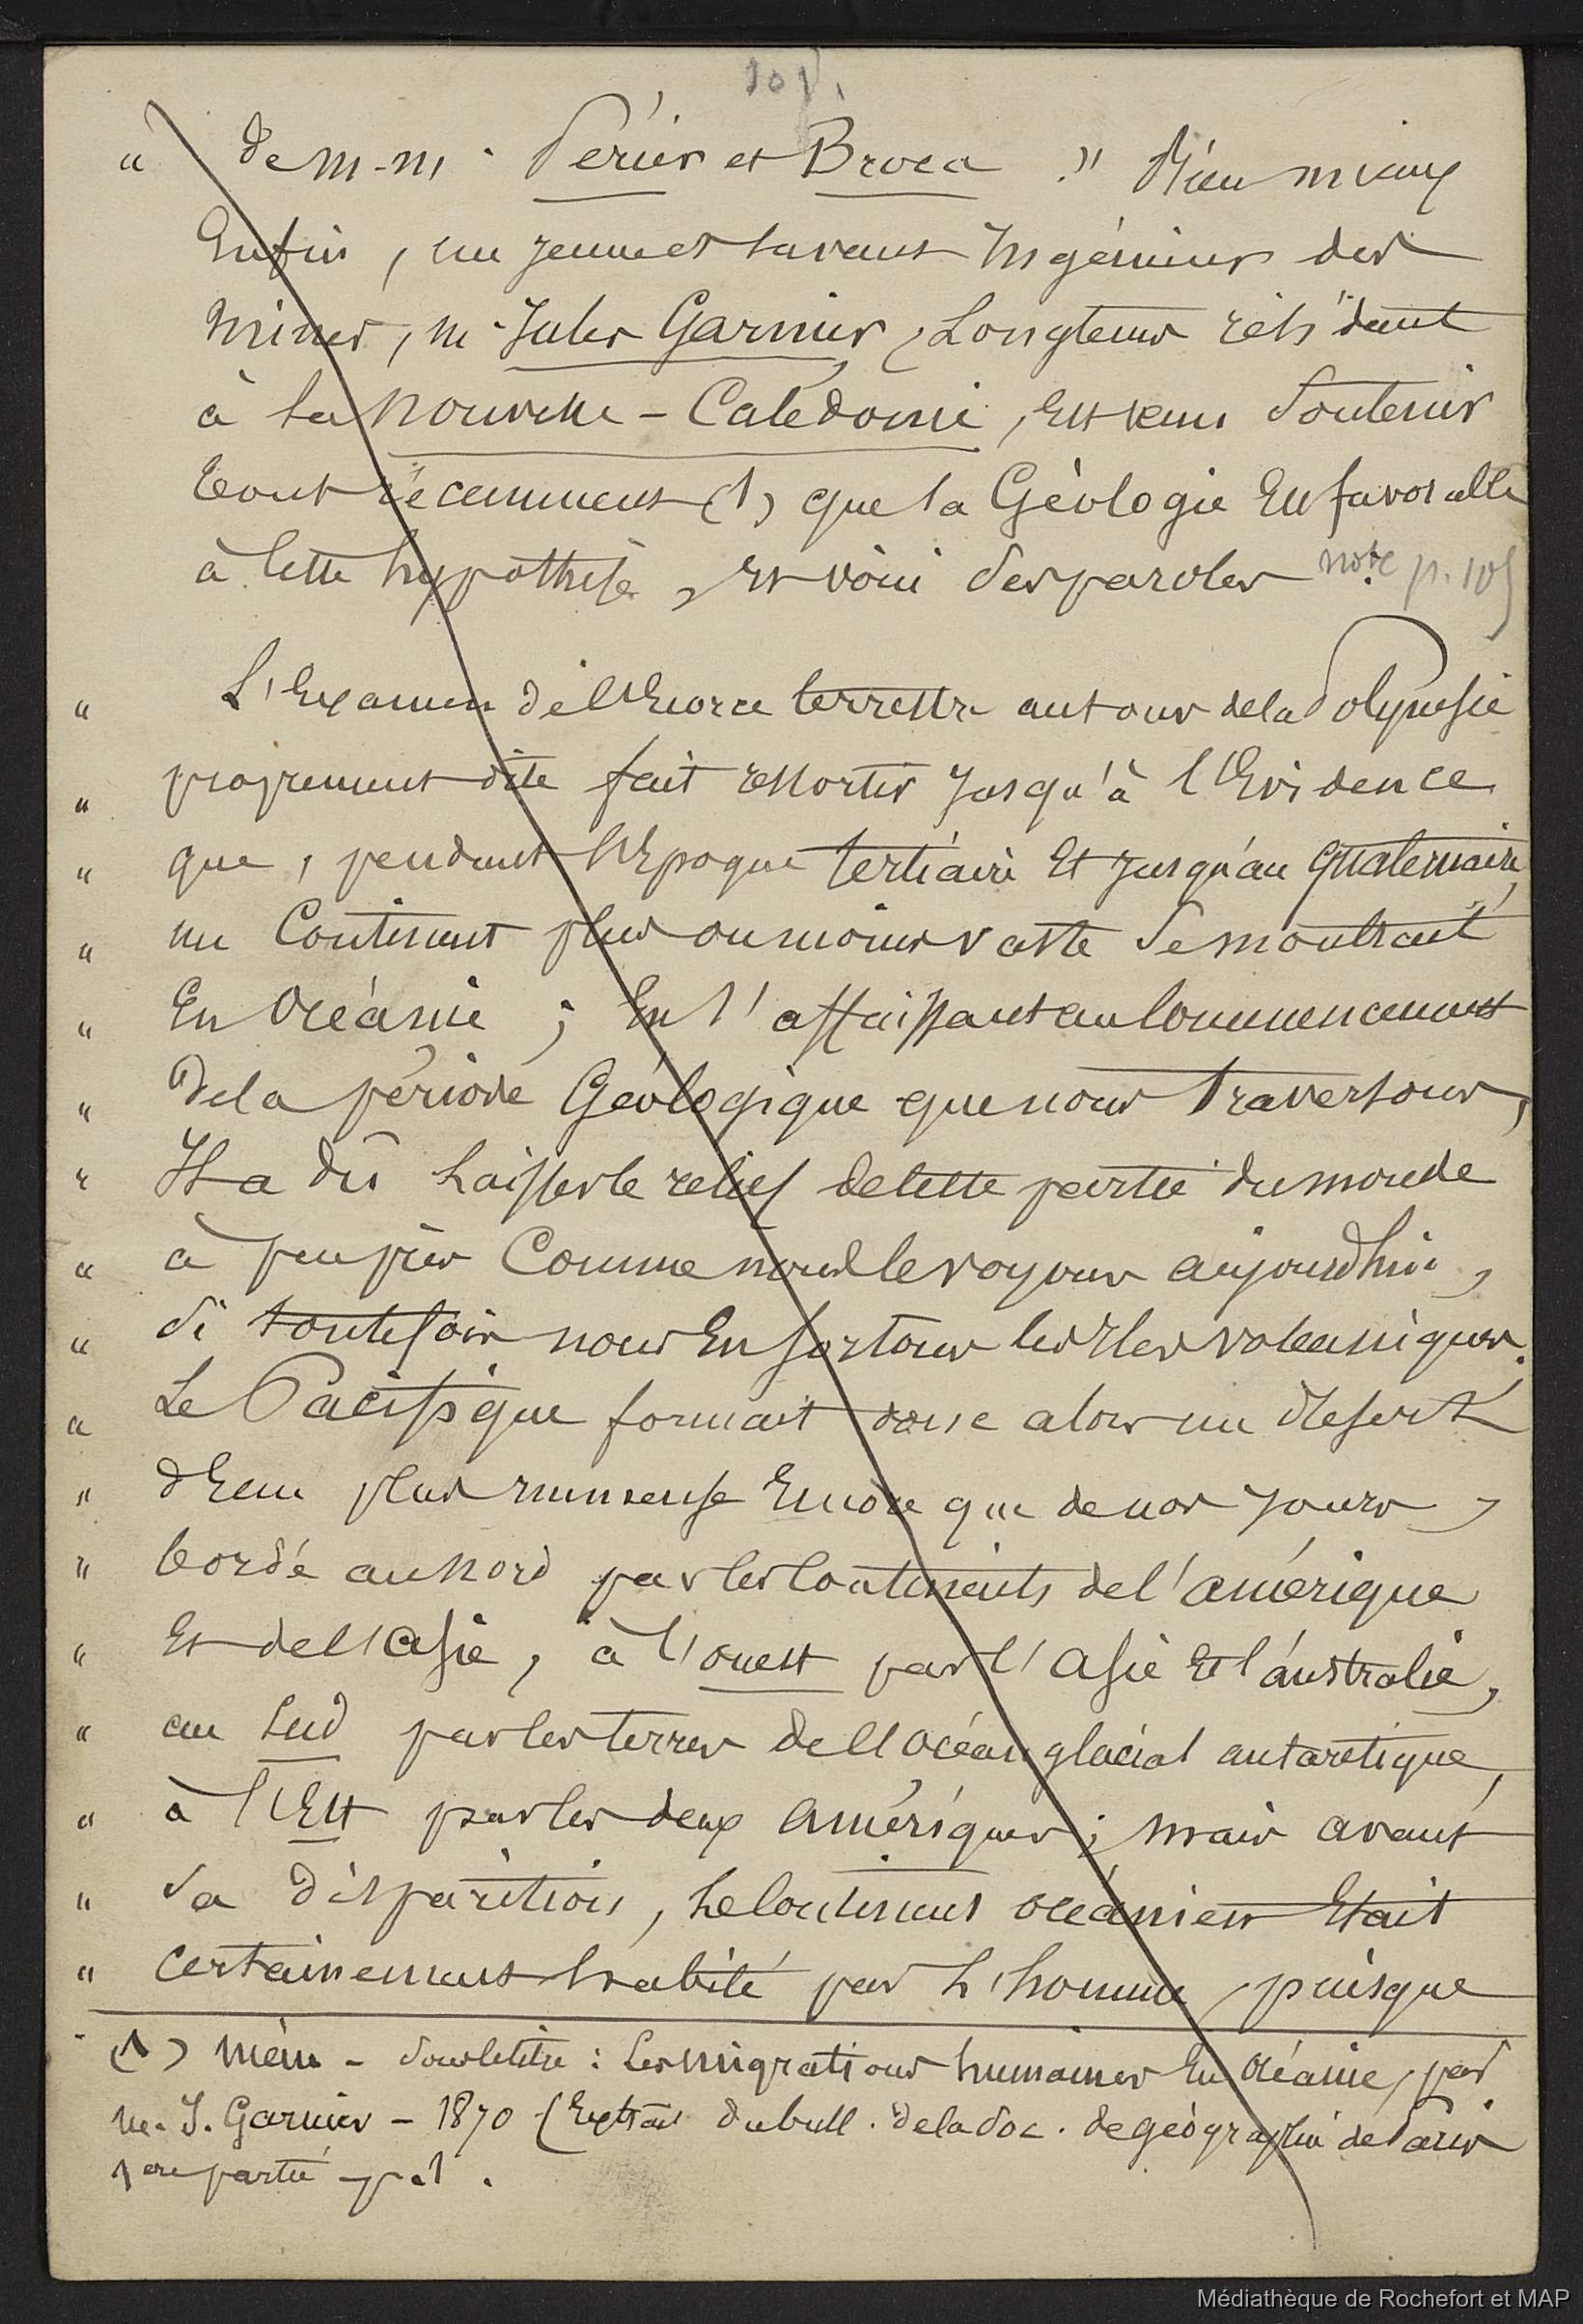 105.
" de M.M. Périer et Broca ." Bien mieux
Enfin, un jeune et savant Ingénieur des
mines, M. Jules Garnier, Longtems résidant
à la Nouvelle-Calédonie, est venu soutenir
tout récemment (1) que la Géologie est favorable
à cette hypothèse, et voici ses paroles note p. 105
" L'Examen de l'Ecorce terrestre autour de la Polynésie
" proprement dite fait ressortir jusqu'à l'Evidence
" que, pendant l'Epoque tertiaire et jusqu'au quaternaire,
" un Continent plus ou moins vaste se montrait
" En Océanie ; En s'affaissant au Commencement
" de la période Géologique que nous traversons,
" Il a dû laisser le relief de cette partie du monde
" à peu près Comme nous le voyons aujourdhui,
" si toutefois nous En sortons les Iles volcaniques.
" Le Pacifique formait donc alors un désert
" d'Eau plus immense Encore que de nos jours,
" bordé au Nord par les Continents de l'amérique
" Et de l'Asie, à l'ouest par l'Asie Et l'australie,
" au Sud par les terres de l'océan glacial antarctique,
" à l'Est par les deux Amériques ; mais avant
" sa disparition, le Continent océanien Etait
" certainement habité par l'homme, puisque
(1) Mém - sous le titre : Les migrations humaines En Océanie, par
M. J. Garnier - 1870 (Extrait du bull. de la Soc. de géographie de Paris
1ere partie p. 1.
Médiathèque de Rochefort et MAP